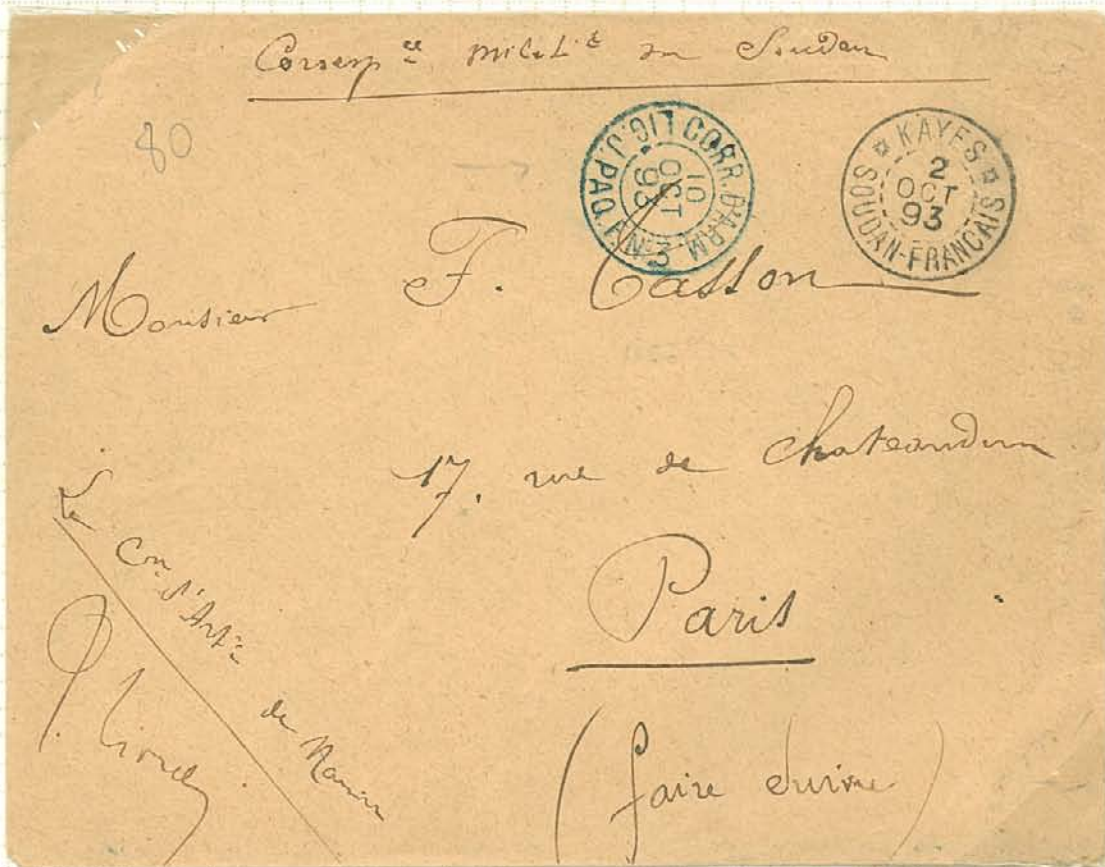 Corresp ce milit e du Soudan
80
CORR. D'ARM. LIG. J. PAQ. F. N° 3
10
OCT
93
KAYES
2
OCT
93
SOUDAN-FRANCAIS
Monsieur F. Casson
17. rue de Chateaudun
Paris
(faire suivre)
Le Cne d'Artie
de Marine